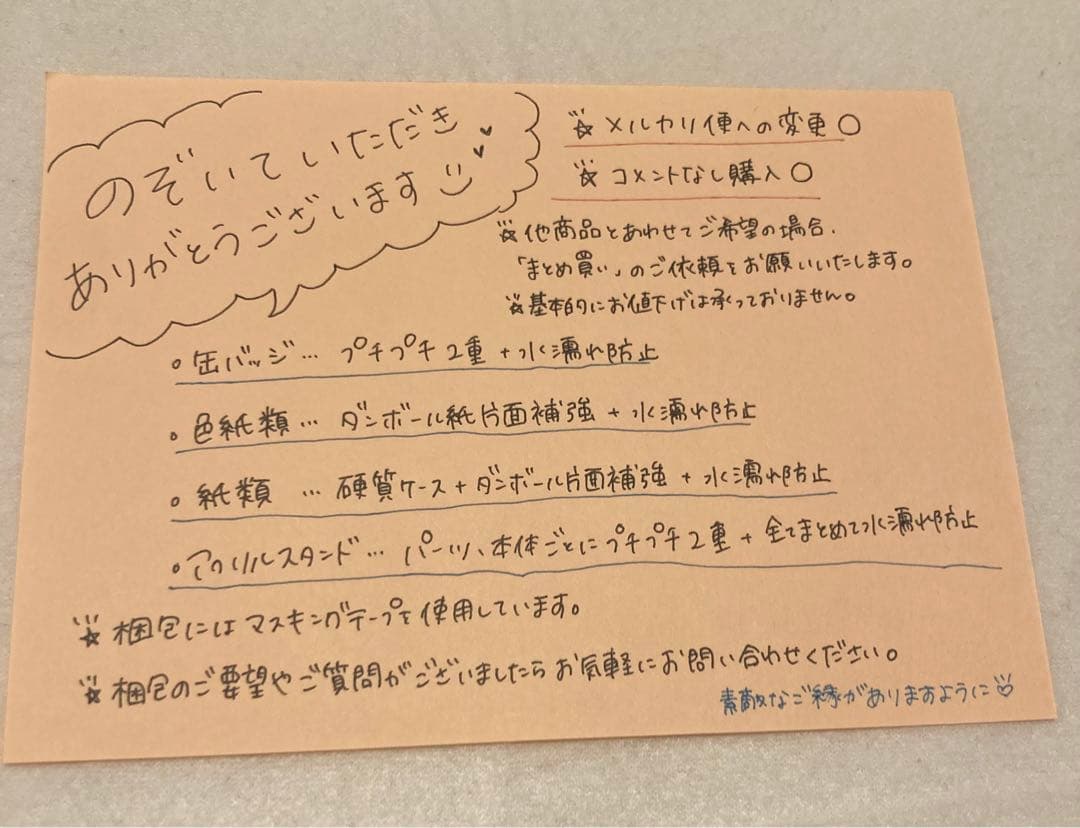 のぞいていただき
ありがとうございます
☆メルカリ便への変更○
☆コメントなし購入○
☆他商品とあわせてご希望の場合、
「まとめ買い」のご依頼をお願いいたします。
☆基本的にお値下げは承っておりません。
○缶バッジ… プチプチ2重+水濡れ防止
○色紙類… ダンボール紙片面補強+水濡れ防止
○紙類 … 硬質ケース+ダンボール片面補強+水濡れ防止
○アクリルスタンド… パーツ、本体ごとにプチプチ2重+全てまとめて水濡れ防止
☆梱包にはマスキングテープを使用しています。
☆梱包のご要望やご質問がございましたらお気軽にお問い合わせください。
素敵なご縁がありますように♡